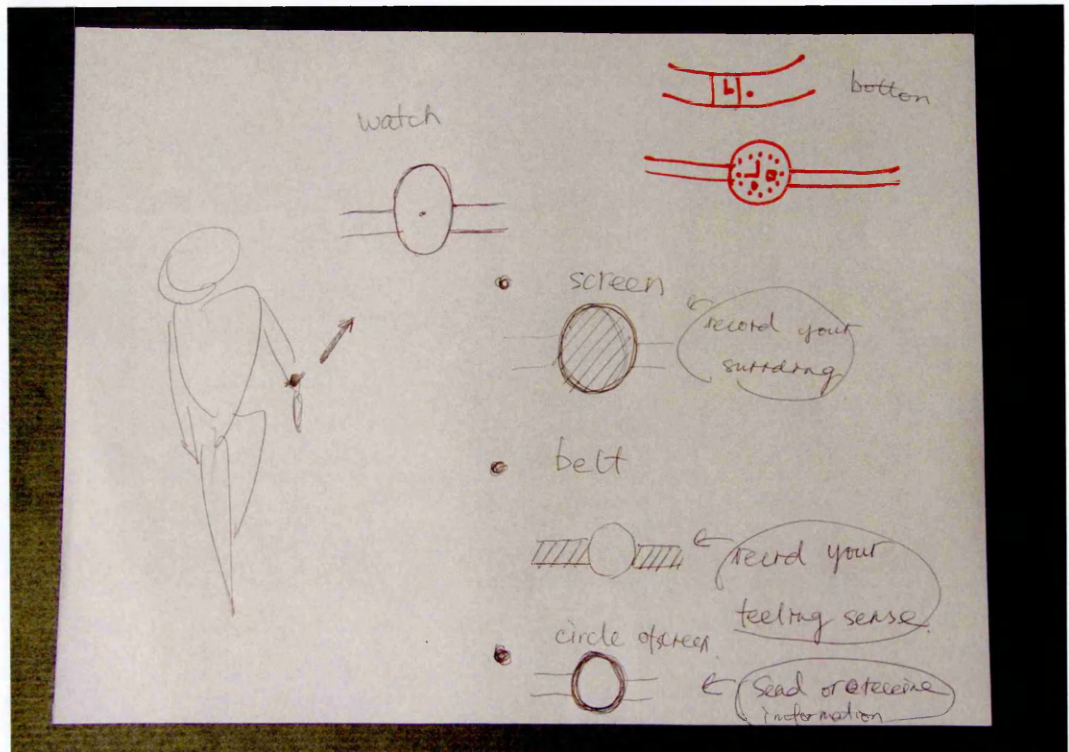 watch
botton
screen
record your
surrdrng
belt
record your
feeling sense.
circle of screen
Send or receive
information